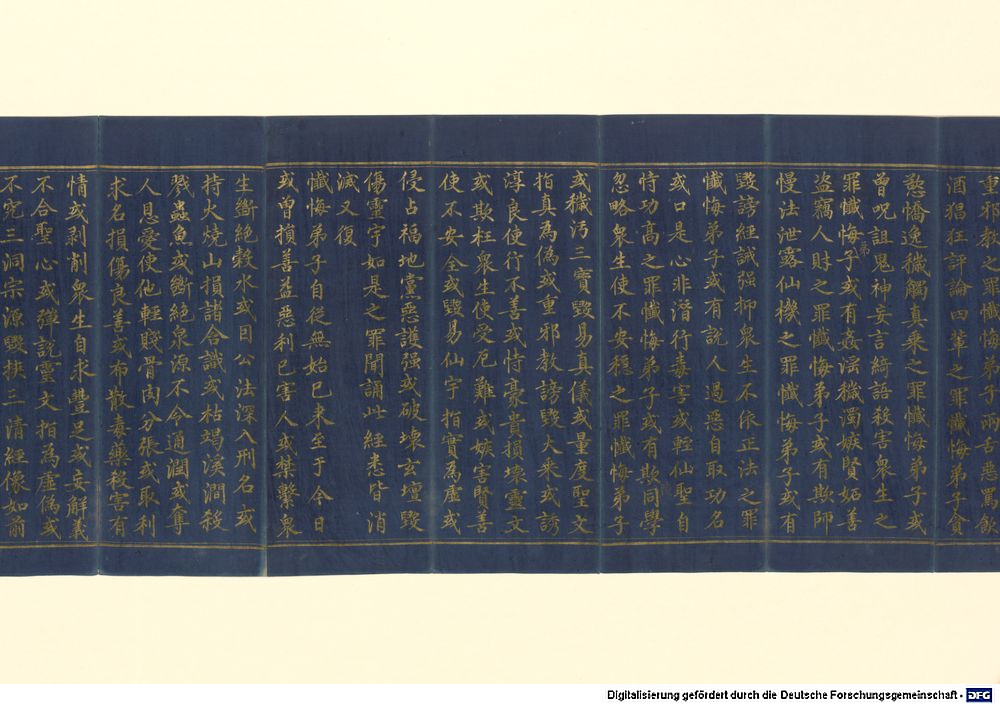 重邪教之罪懺悔弟子兩舌惡罵飲
酒猖狂評論四輩之罪懺悔弟子貪
憍逸穢觸真乘之罪懺悔弟子或
曾呪詛鬼神妄言綺語殺害衆生之
罪懺悔子或有姦淫穢濁嫉賢妬善
弟
盜竊人財之罪懺悔弟子或有欺師
慢法泄露仙機之罪懺悔弟子或有
毀謗經誡强抑衆生不依正法之罪
懺悔弟子或有說人過惡自取功名
或口是心非潛行毒害或輕仙聖自
恃功高之罪懺悔弟子或有欺同學
忽略衆生使不安穩之罪懺悔弟子
或穢污三寶毀易真儀或量度聖文
指真為偽或重邪教謗毀大乘或誘
淳良使行不善或恃豪貴損壞靈文
或欺枉衆生使受厄難或嫉害賢善
使不安全或毀易仙宇指實為虛或
侵占福地黨惡護强或破壞玄壇毀
傷靈宇如是之罪聞誦此經悉皆消
滅又復
懺悔弟子自從無始已來至于今日
或曾損善益惡利已害人或禁繫衆
生斷絕穀水或因公法深入刑名或
持火燒山損諸含識或枯竭溪澗殺
戮蟲魚或斷絕泉源不令通潤或奪
人恩愛使他輕賤骨肉分張或取利
求名損傷良善或布散毒藥殺害有
情或剥削衆生自求豐足或妄解義
不合聖心或彈說靈文指為虛偽或
不究三洞宗源毀挾三清經像如前
Digitalisierung gefördert durch die Deutsche Forschungsgemeinschaft - DFG